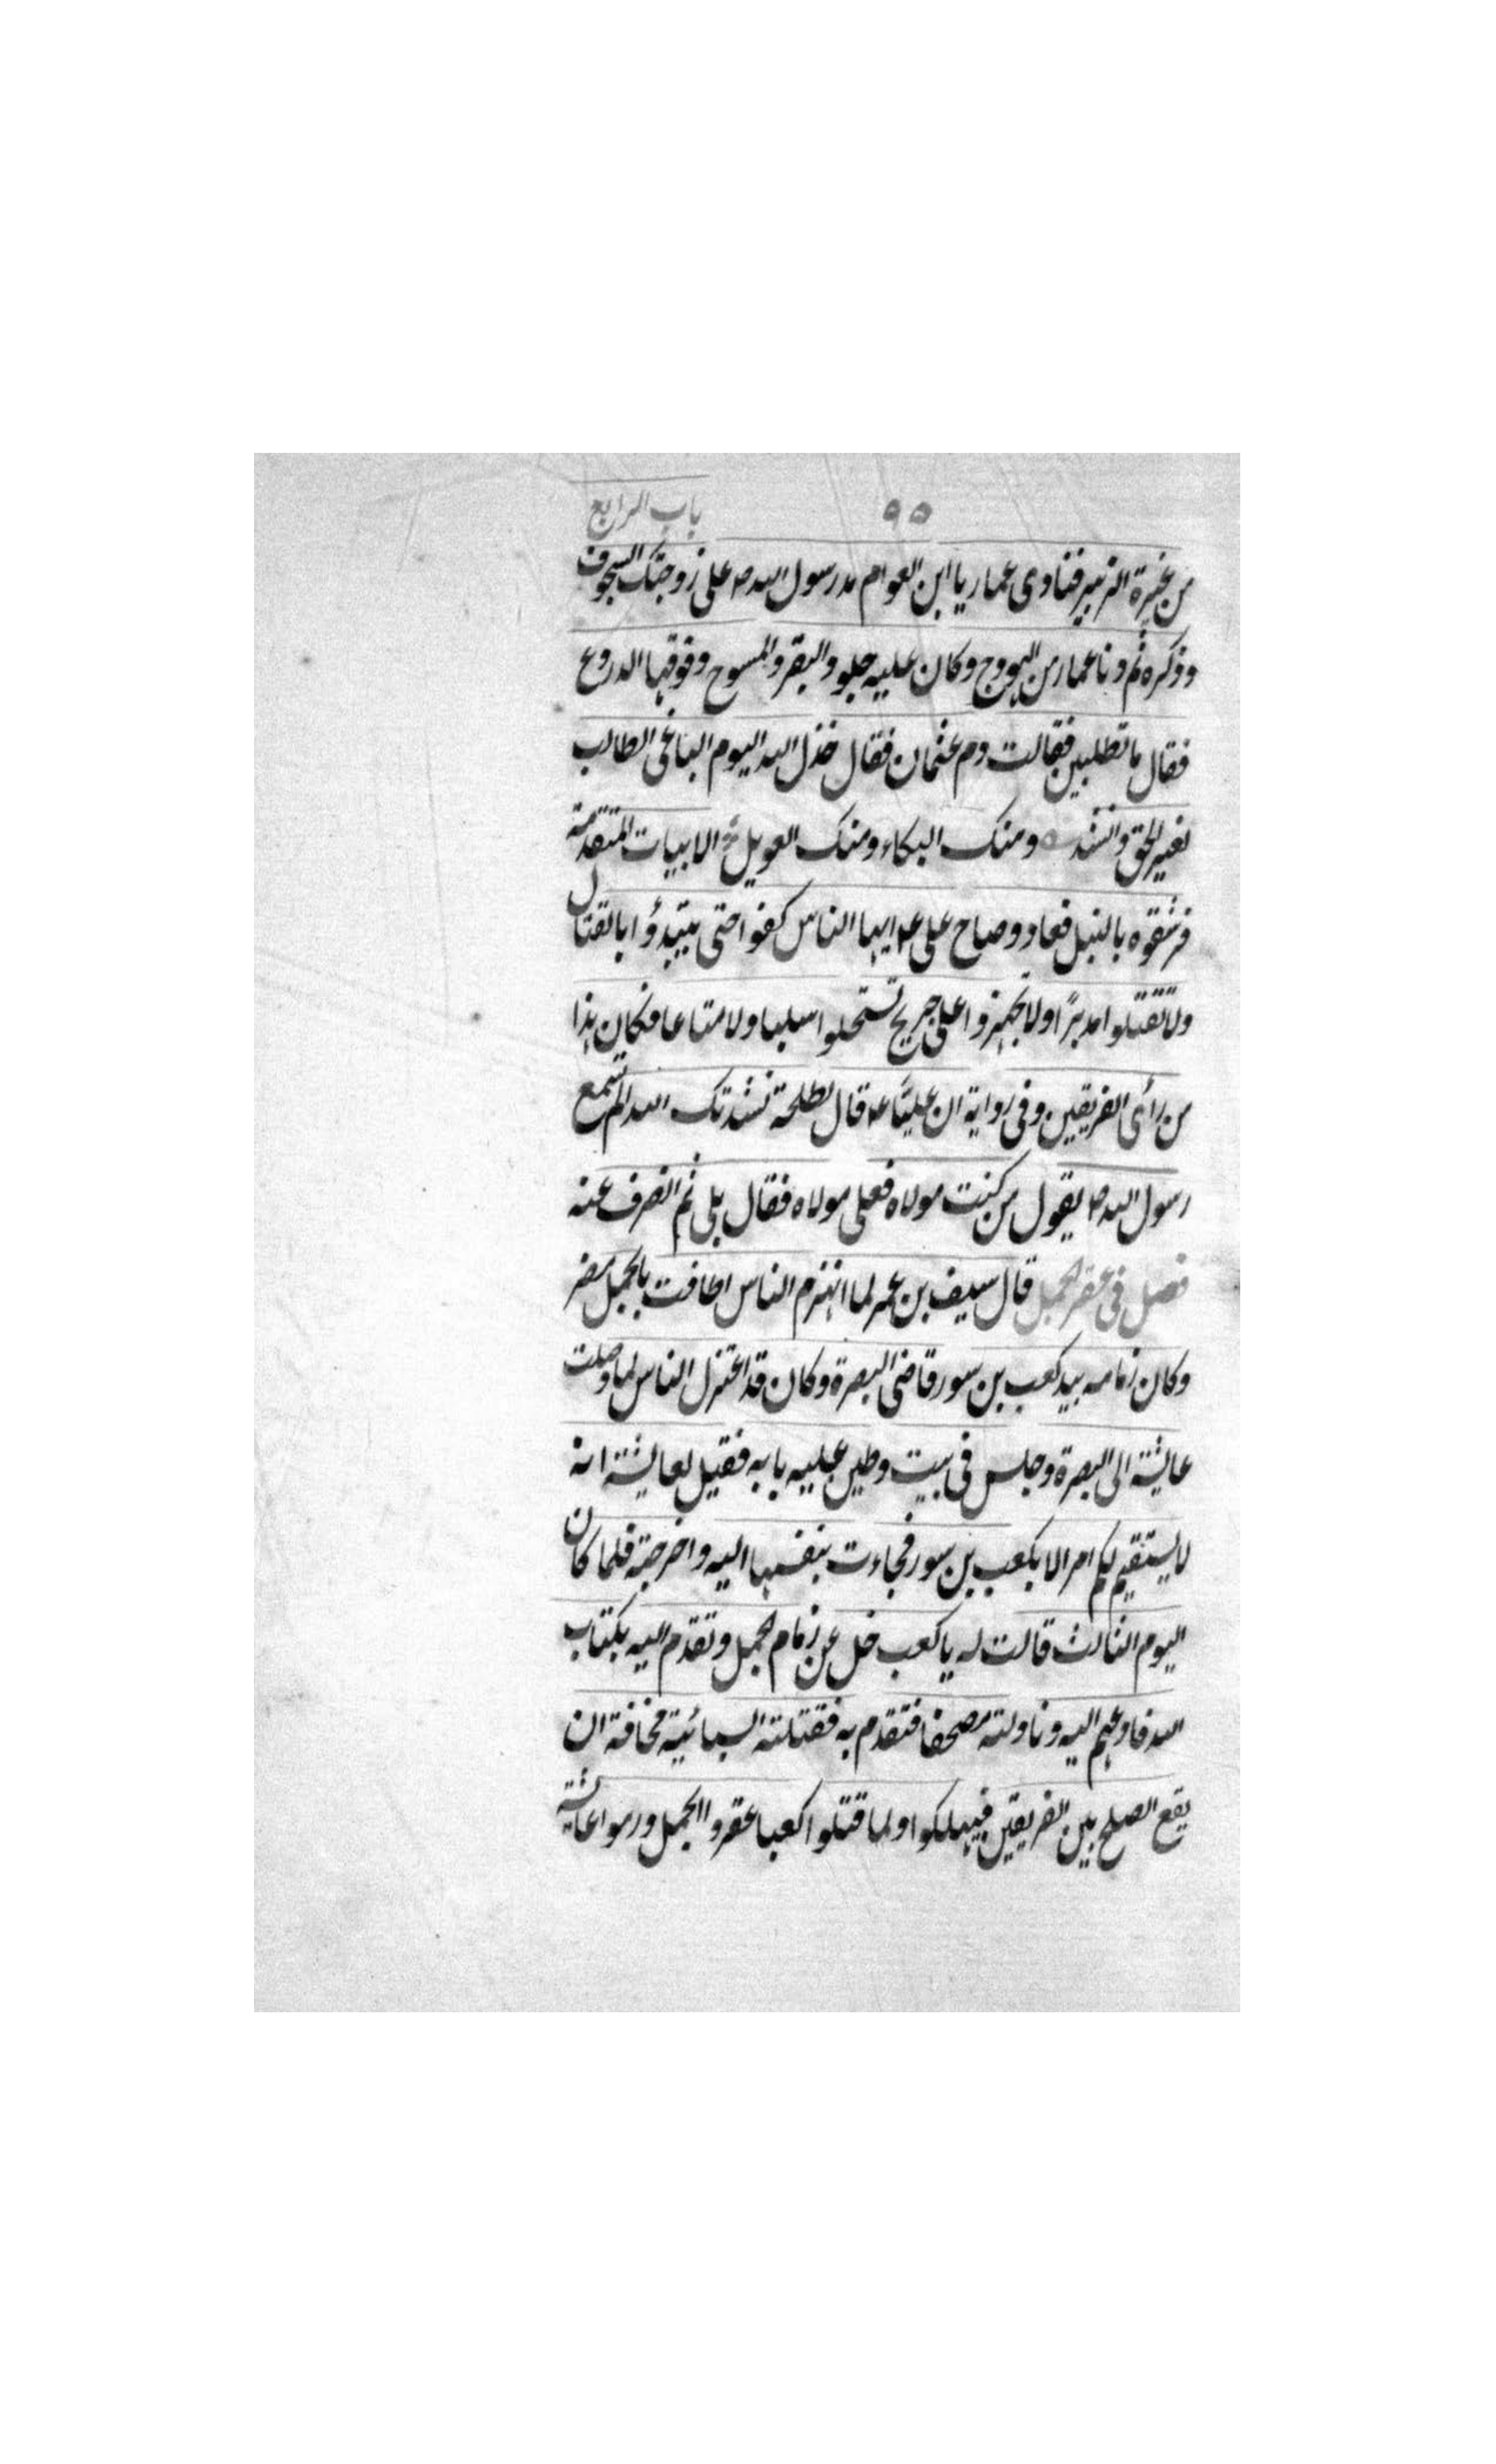 ٩٥ باب الرابع
من غيرة الزبير فنادى عمار يا ابن العوام مد رسول الله ص على زوجتك السجوف
وذكره ثم دنا عمار من الهودج وكان عليه جلود البقر والمسوح وفوقها الدروع
فقال ما تطلبين فقالت دم عثمان فقال خذل الله اليوم الباغى الطالب
بغير الحق وانشد ومنك البكاء ومنك العويل الابيات المتقدمة
فرشقوه بالنبل فعاد وصاح على ع ايها الناس كفوا حتى يبتدؤا بالقتال
ولا تقتلوا مدبرًا ولا تجهزوا على جريح تستحلوا سلبا ولا متاعا فكان هذا
من رأى الفريقين وفى رواية ان عليًا ع قال لطلحة نشدتك الله الم تسمع
رسول الله ص يقول من كنت مولاه فعلى مولاه فقال بلى ثم انصرف عنه
فصل فى عقر الجمل قال سيف بن عمر لما انهزم الناس اطافت بالجمل مضر
وكان زمامه بيد كعب بن سور قاضى البصرة وكان قد اعتزل الناس لما وصلت
عايشة الى البصرة وجلس فى بيت وطين عليه بابه فقيل لعايشة انه
لا يستقيم لكم امر الا بكعب بن سور فجاءت بنفسها اليه واخرجته فلما كان
اليوم الثالث قالت له يا كعب خل عن زمام الجمل وتقدم اليه بكتاب
الله فادعهم اليه وناولته مصحفا فتقدم به فقتلته السبائية مخافة ان
يقع الصلح بين الفريقين فيهلكوا ولما قتلوا كعبا عقروا الجمل ورموا عايشة